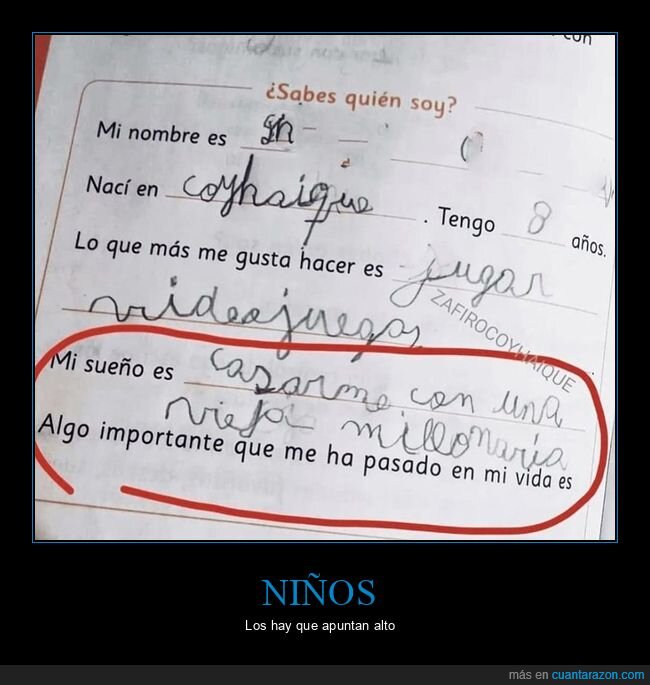 con
¿Sabes quién soy?
Mi nombre es
Nací en coyhaique. Tengo 8 años.
Lo que más me gusta hacer es jugar
videojuegos
ZAFIROCOYHAIQUE
Mi sueño es casarme con una
vieja millonaria
Algo importante que me ha pasado en mi vida es
NIÑOS
Los hay que apuntan alto
más en cuantarazon.com